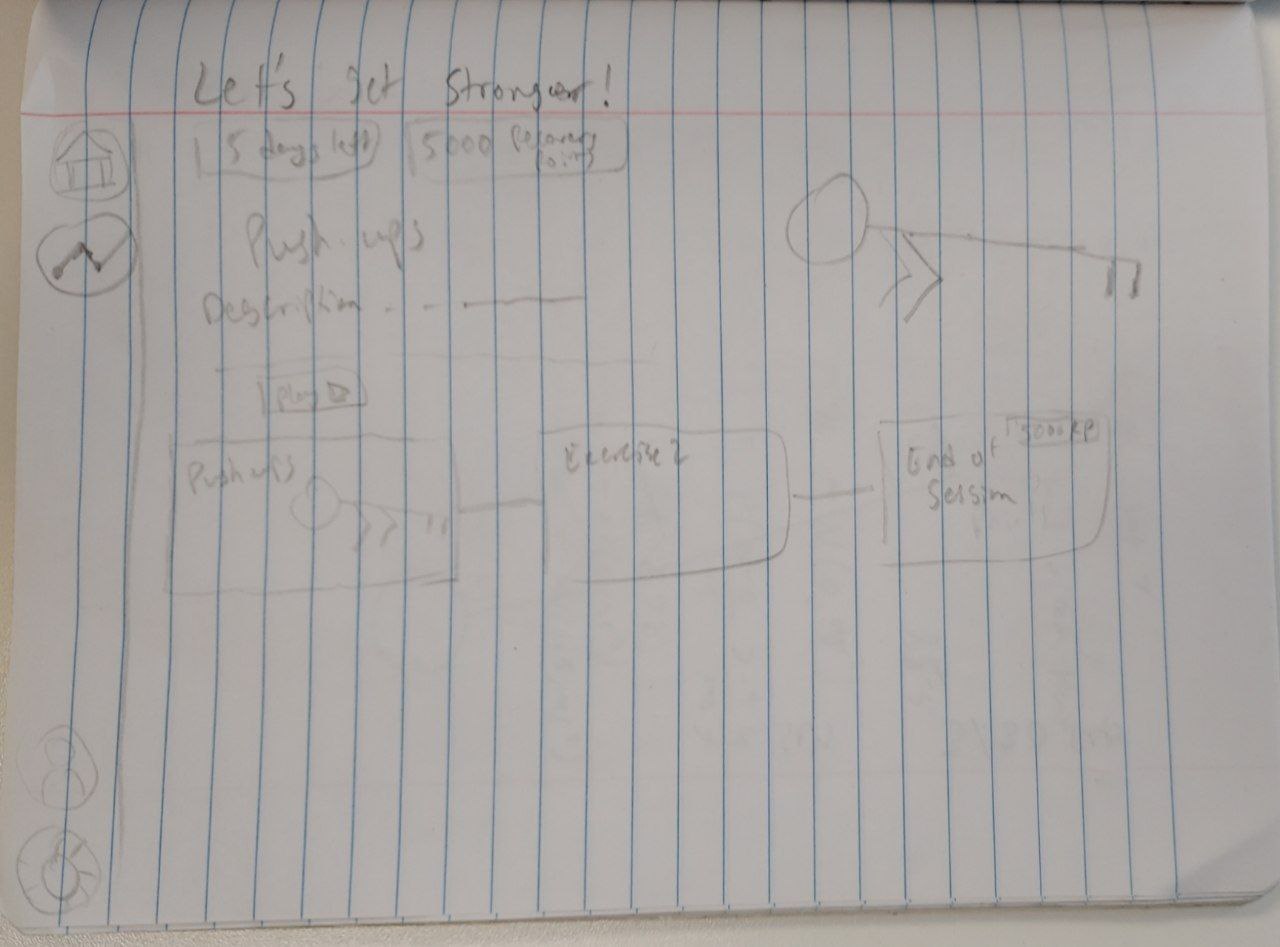 Let's get stronger!
5 days left
5000 Recovery Points
Push-ups
Description
Play
Push ups
Exercise 2
End of Session
5000 RP